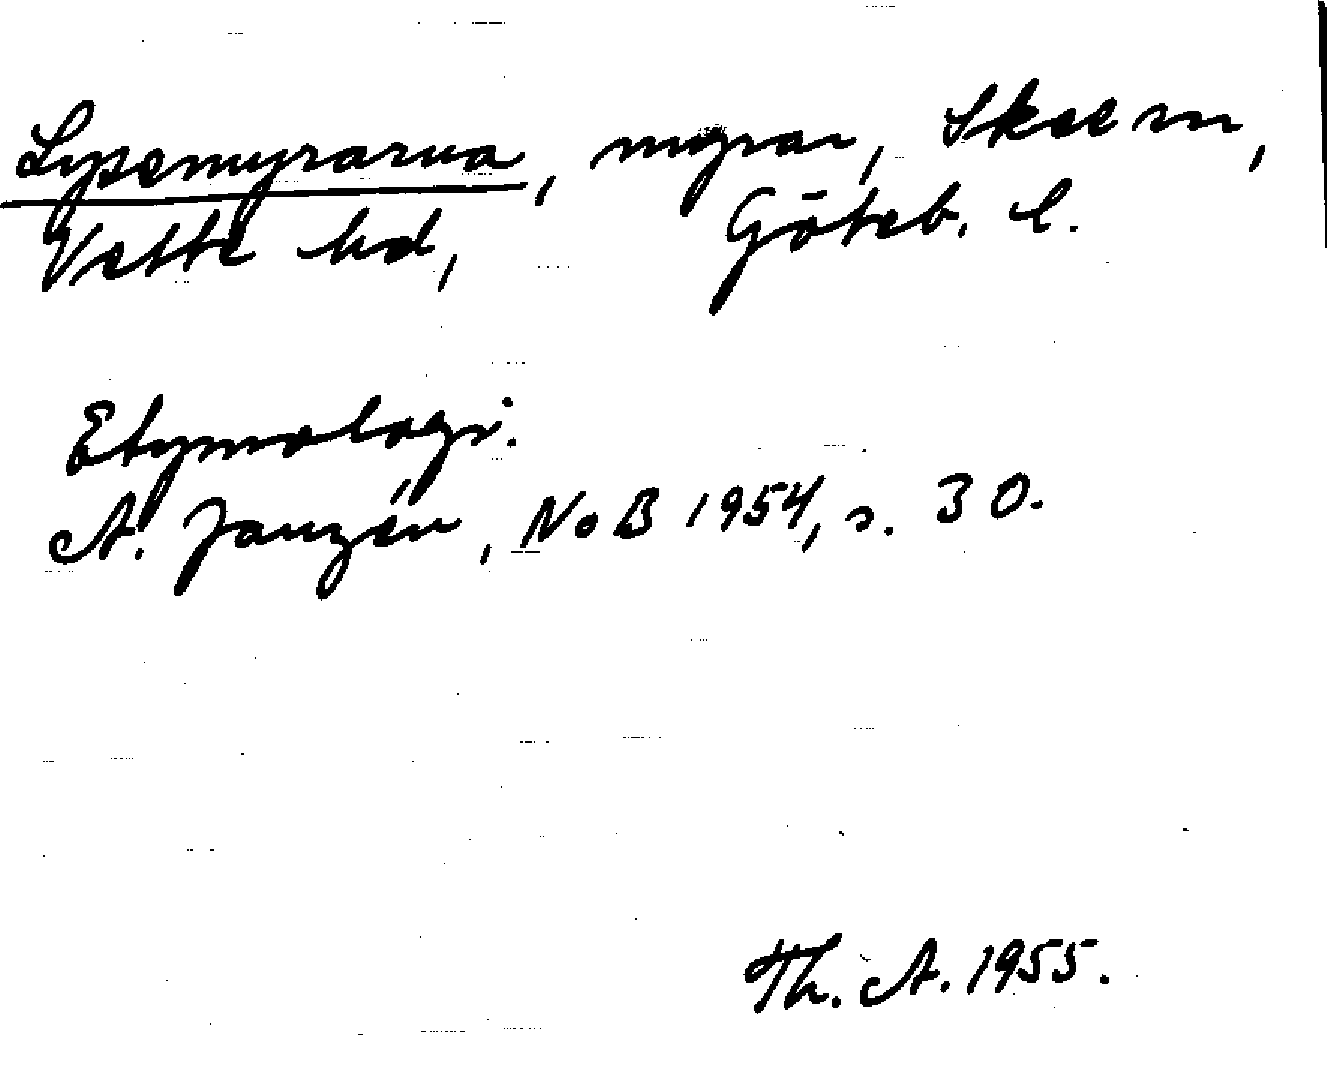 Lysemyrarna, myrar, Skee sn,
Vette hd, Göteb. l.
Etymologi:
A. Janzén, NoB 1954, s. 30.
Th. A. 1955.